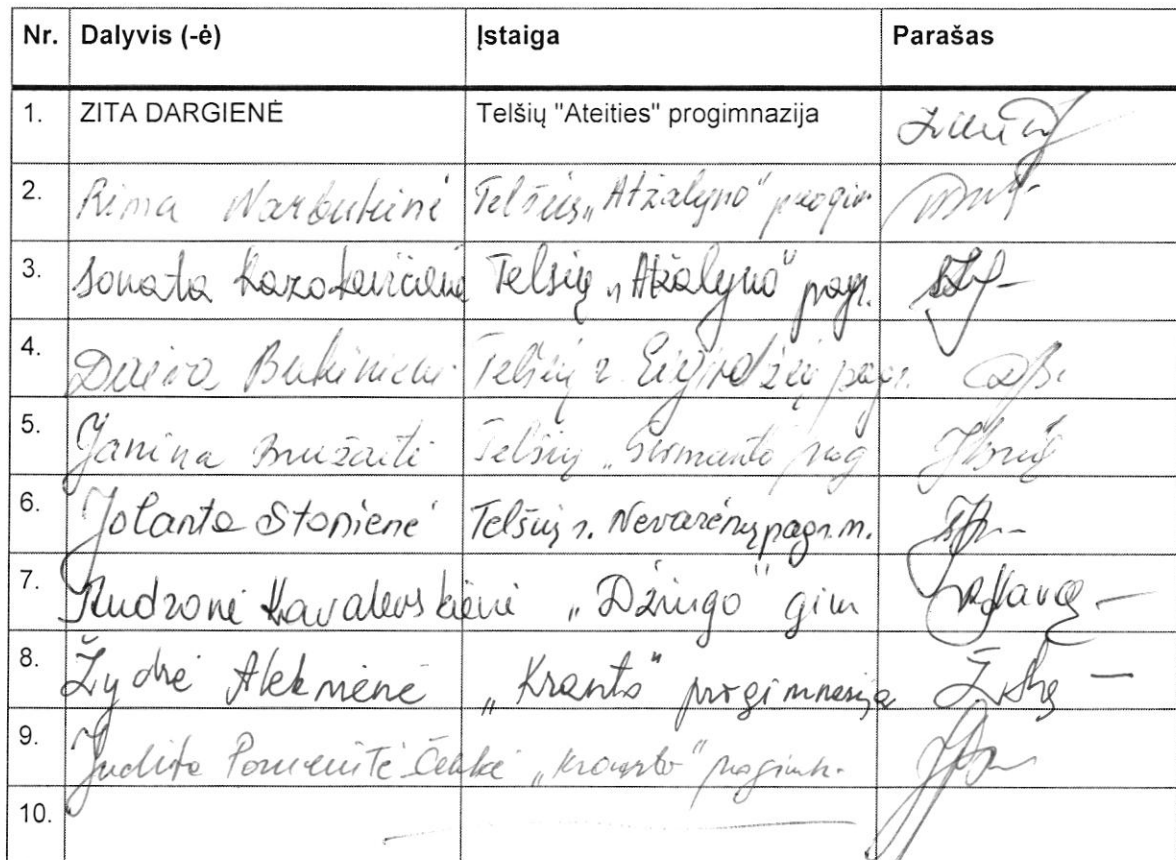 Nr. Dalyvis (-ė) Įstaiga Parašas
1. ZITA DARGIENĖ Telšių "Ateities" progimnazija
2. Rima Narbutienė Telšių „Atžalyno" progim.
3. Sonata Kazakavičienė Telšių „Atžalyno" progr.
4. Daiva Telšių r. Eigirdžių pagr.
5. Janina Bružaitė Telšių
6. Jolanta Stonienė Telšių r. Nevarėnų pagr. m.
7. Rudzonė Kavalevskienė „Džiugo" gim
8. Žydrė Aleknienė „Kranto" progimnazija
9. Judita „Kranto" progimn.
10.